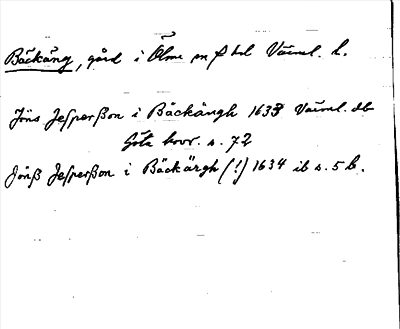 Bäckäng, gård i Ölme sn o hd Värml. l.
Jöns Jesperßon i Bäckängh 1633 Värml. db
Göta hovr. s. 72
Jönß Jesperßon i Bäckärgh (!) 1634 ib s. 5 b.